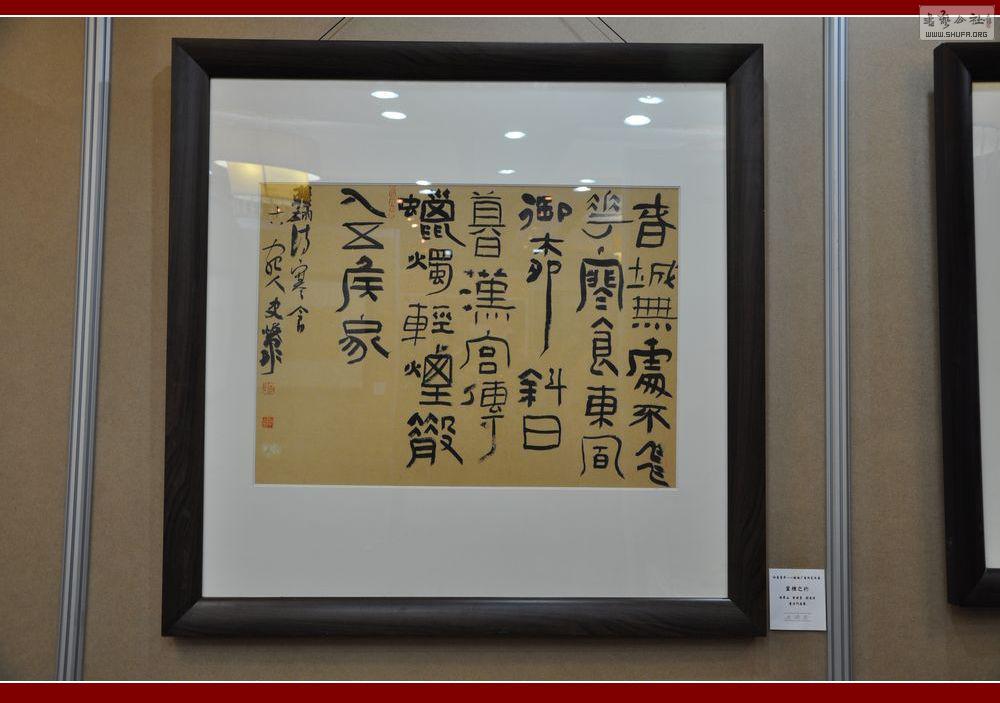 春城無處不飛
花寒食東風
御柳斜日
暮漢宮傳
蠟燭輕煙散
入五侯家
韓翃詩寒食
书艺公社
WWW.SHUFA.ORG